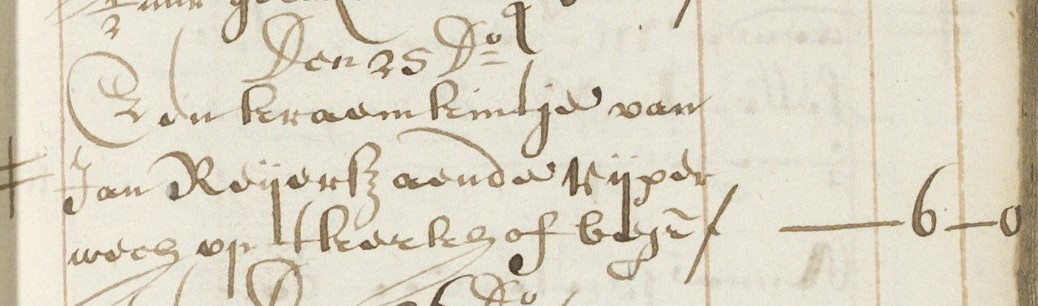 Den 25 Do
Een kraemkintje van
Jan Reijersz aende Rijper
wech op t kerckhof begr 6 - 0